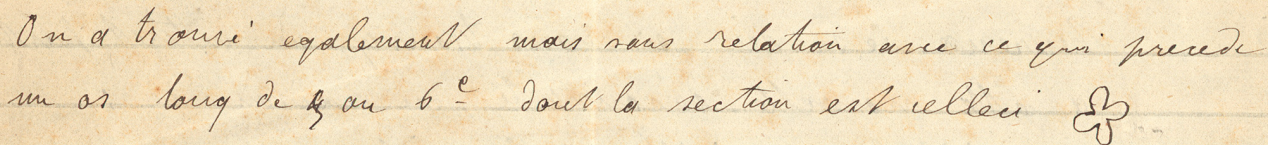 On a trouvé egalement mais sans relation avec ce qui precede
un os long de 5 ou 6 c dont la section est celle ci